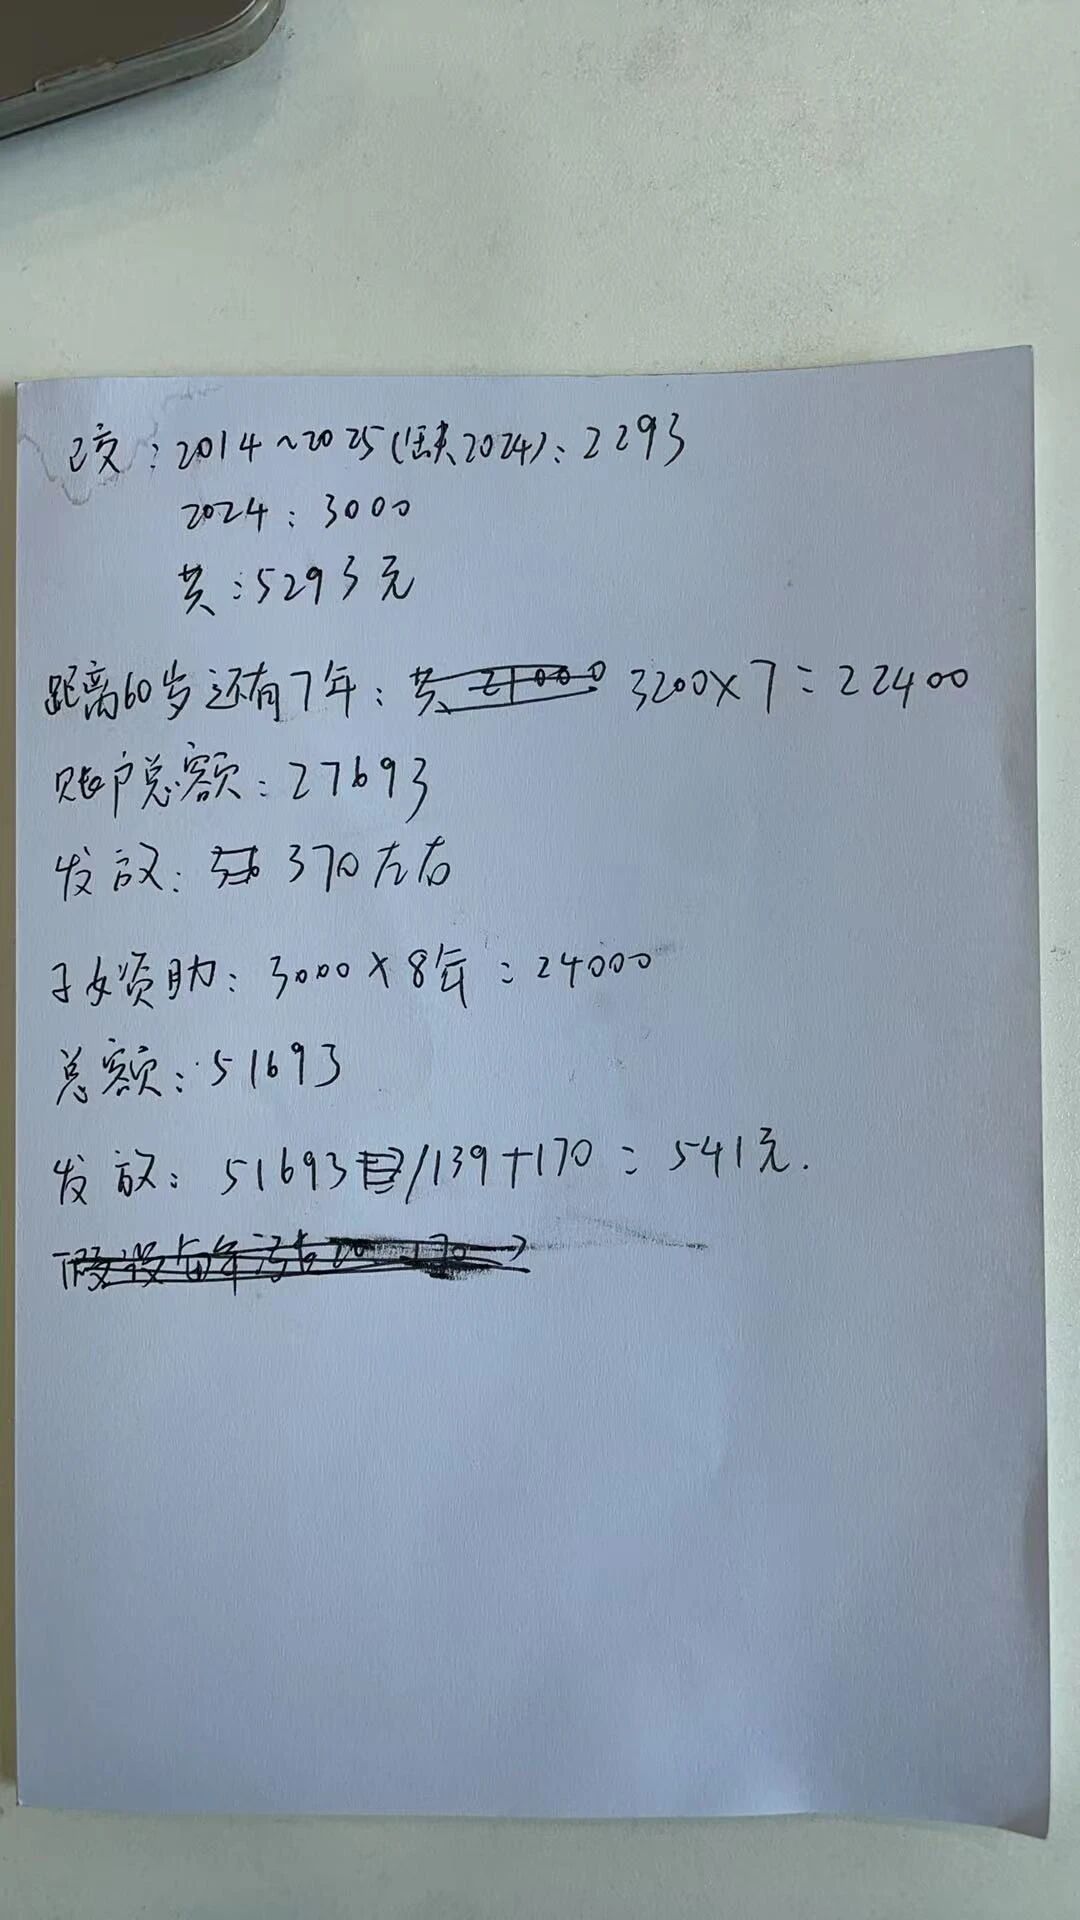 已交：2014~2025(缺2024)：2293
2024：3000
共：5293元
距离60岁还有7年：共 21000 3200×7=22400
账户总额：27693
发放：370左右
子女资助：3000×8年=24000
总额：51693
发放：51693/139+170=541元.
假设每年涨